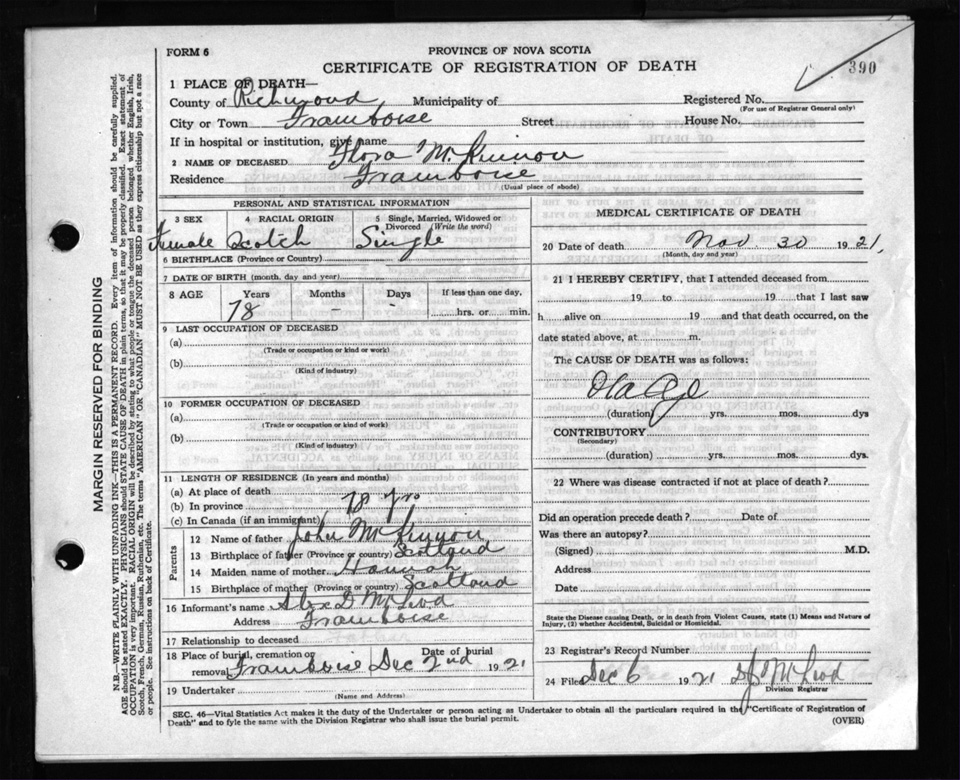 FORM 6
PROVINCE OF NOVA SCOTIA
CERTIFICATE OF REGISTRATION OF DEATH
390
1 PLACE OF DEATH—
County of Richmond Municipality of
Registered No.
(For use of Registrar General only)
City or Town Framboise Street House No.
If in hospital or institution, give name
2 NAME OF DECEASED Flora McKinnon
Residence Framboise
(Usual place of abode)
PERSONAL AND STATISTICAL INFORMATION
3 SEX 4 RACIAL ORIGIN 5 Single, Married, Widowed or Divorced (Write the word)
Female Scotch Single
6 BIRTHPLACE (Province or Country)
7 DATE OF BIRTH (month, day and year)
8 AGE Years Months Days If less than one day,
78 – hrs. or min.
9 LAST OCCUPATION OF DECEASED
(a)
(Trade or occupation or kind or work)
(b)
(Kind of industry)
10 FORMER OCCUPATION OF DECEASED
(a)
(Trade or occupation or kind or work)
(b)
(Kind of industry)
11 LENGTH OF RESIDENCE (In years and months)
(a) At place of death
(b) In province 78 yrs
(c) In Canada (if an immigrant)
Parents
12 Name of father John McKinnon
13 Birthplace of father (Province or country) Scotland
14 Maiden name of mother Hannah
15 Birthplace of mother (Province or country) Scotland
16 Informant's name Alex D McLeod
Address Framboise
17 Relationship to deceased
18 Place of burial, cremation or removal Framboise Date of burial Dec 2nd 1921
19 Undertaker
(Name and Address)
MEDICAL CERTIFICATE OF DEATH
20 Date of death Nov 30 1921,
(Month, day and year)
21 I HEREBY CERTIFY, that I attended deceased from
19 to 19 that I last saw
h alive on 19 and that death occurred, on the
date stated above, at m.
The CAUSE OF DEATH was as follows:
Old Age
(duration) yrs. mos. dys
CONTRIBUTORY
(Secondary)
(duration) yrs. mos. dys.
22 Where was disease contracted if not at place of death?
Did an operation precede death? Date of
Was there an autopsy?
(Signed) M.D.
Address
Date
State the Disease causing Death, or in death from Violent Causes, state (1) Means and Nature of
Injury, (2) whether Accidental, Suicidal or Homicidal.
23 Registrar's Record Number
24 Filed Dec 6 1921 D J McLeod
Division Registrar
SEC. 46—Vital Statistics Act makes it the duty of the Undertaker or person acting as Undertaker to obtain all the particulars required in the "Certificate of Registration of
Death" and to fyle the same with the Division Registrar who shall issue the burial permit.
(OVER)
MARGIN RESERVED FOR BINDING
N.B.—WRITE PLAINLY WITH UNFADING INK—THIS IS A PERMANENT RECORD. Every item of information should be carefully supplied.
AGE should be stated EXACTLY. PHYSICIANS should STATE CAUSE OF DEATH in plain terms, so that it may be properly classified. Exact statement of
OCCUPATION is very important. RACIAL ORIGIN will be described by stating to what people or tongue the deceased person belonged whether English, Irish,
Scotch, French, German, Russian, Ruthenian, etc. The terms "AMERICAN" OR "CANADIAN" MUST NOT BE USED as they express citizenship but not a race
or people. See instructions on back of Certificate.